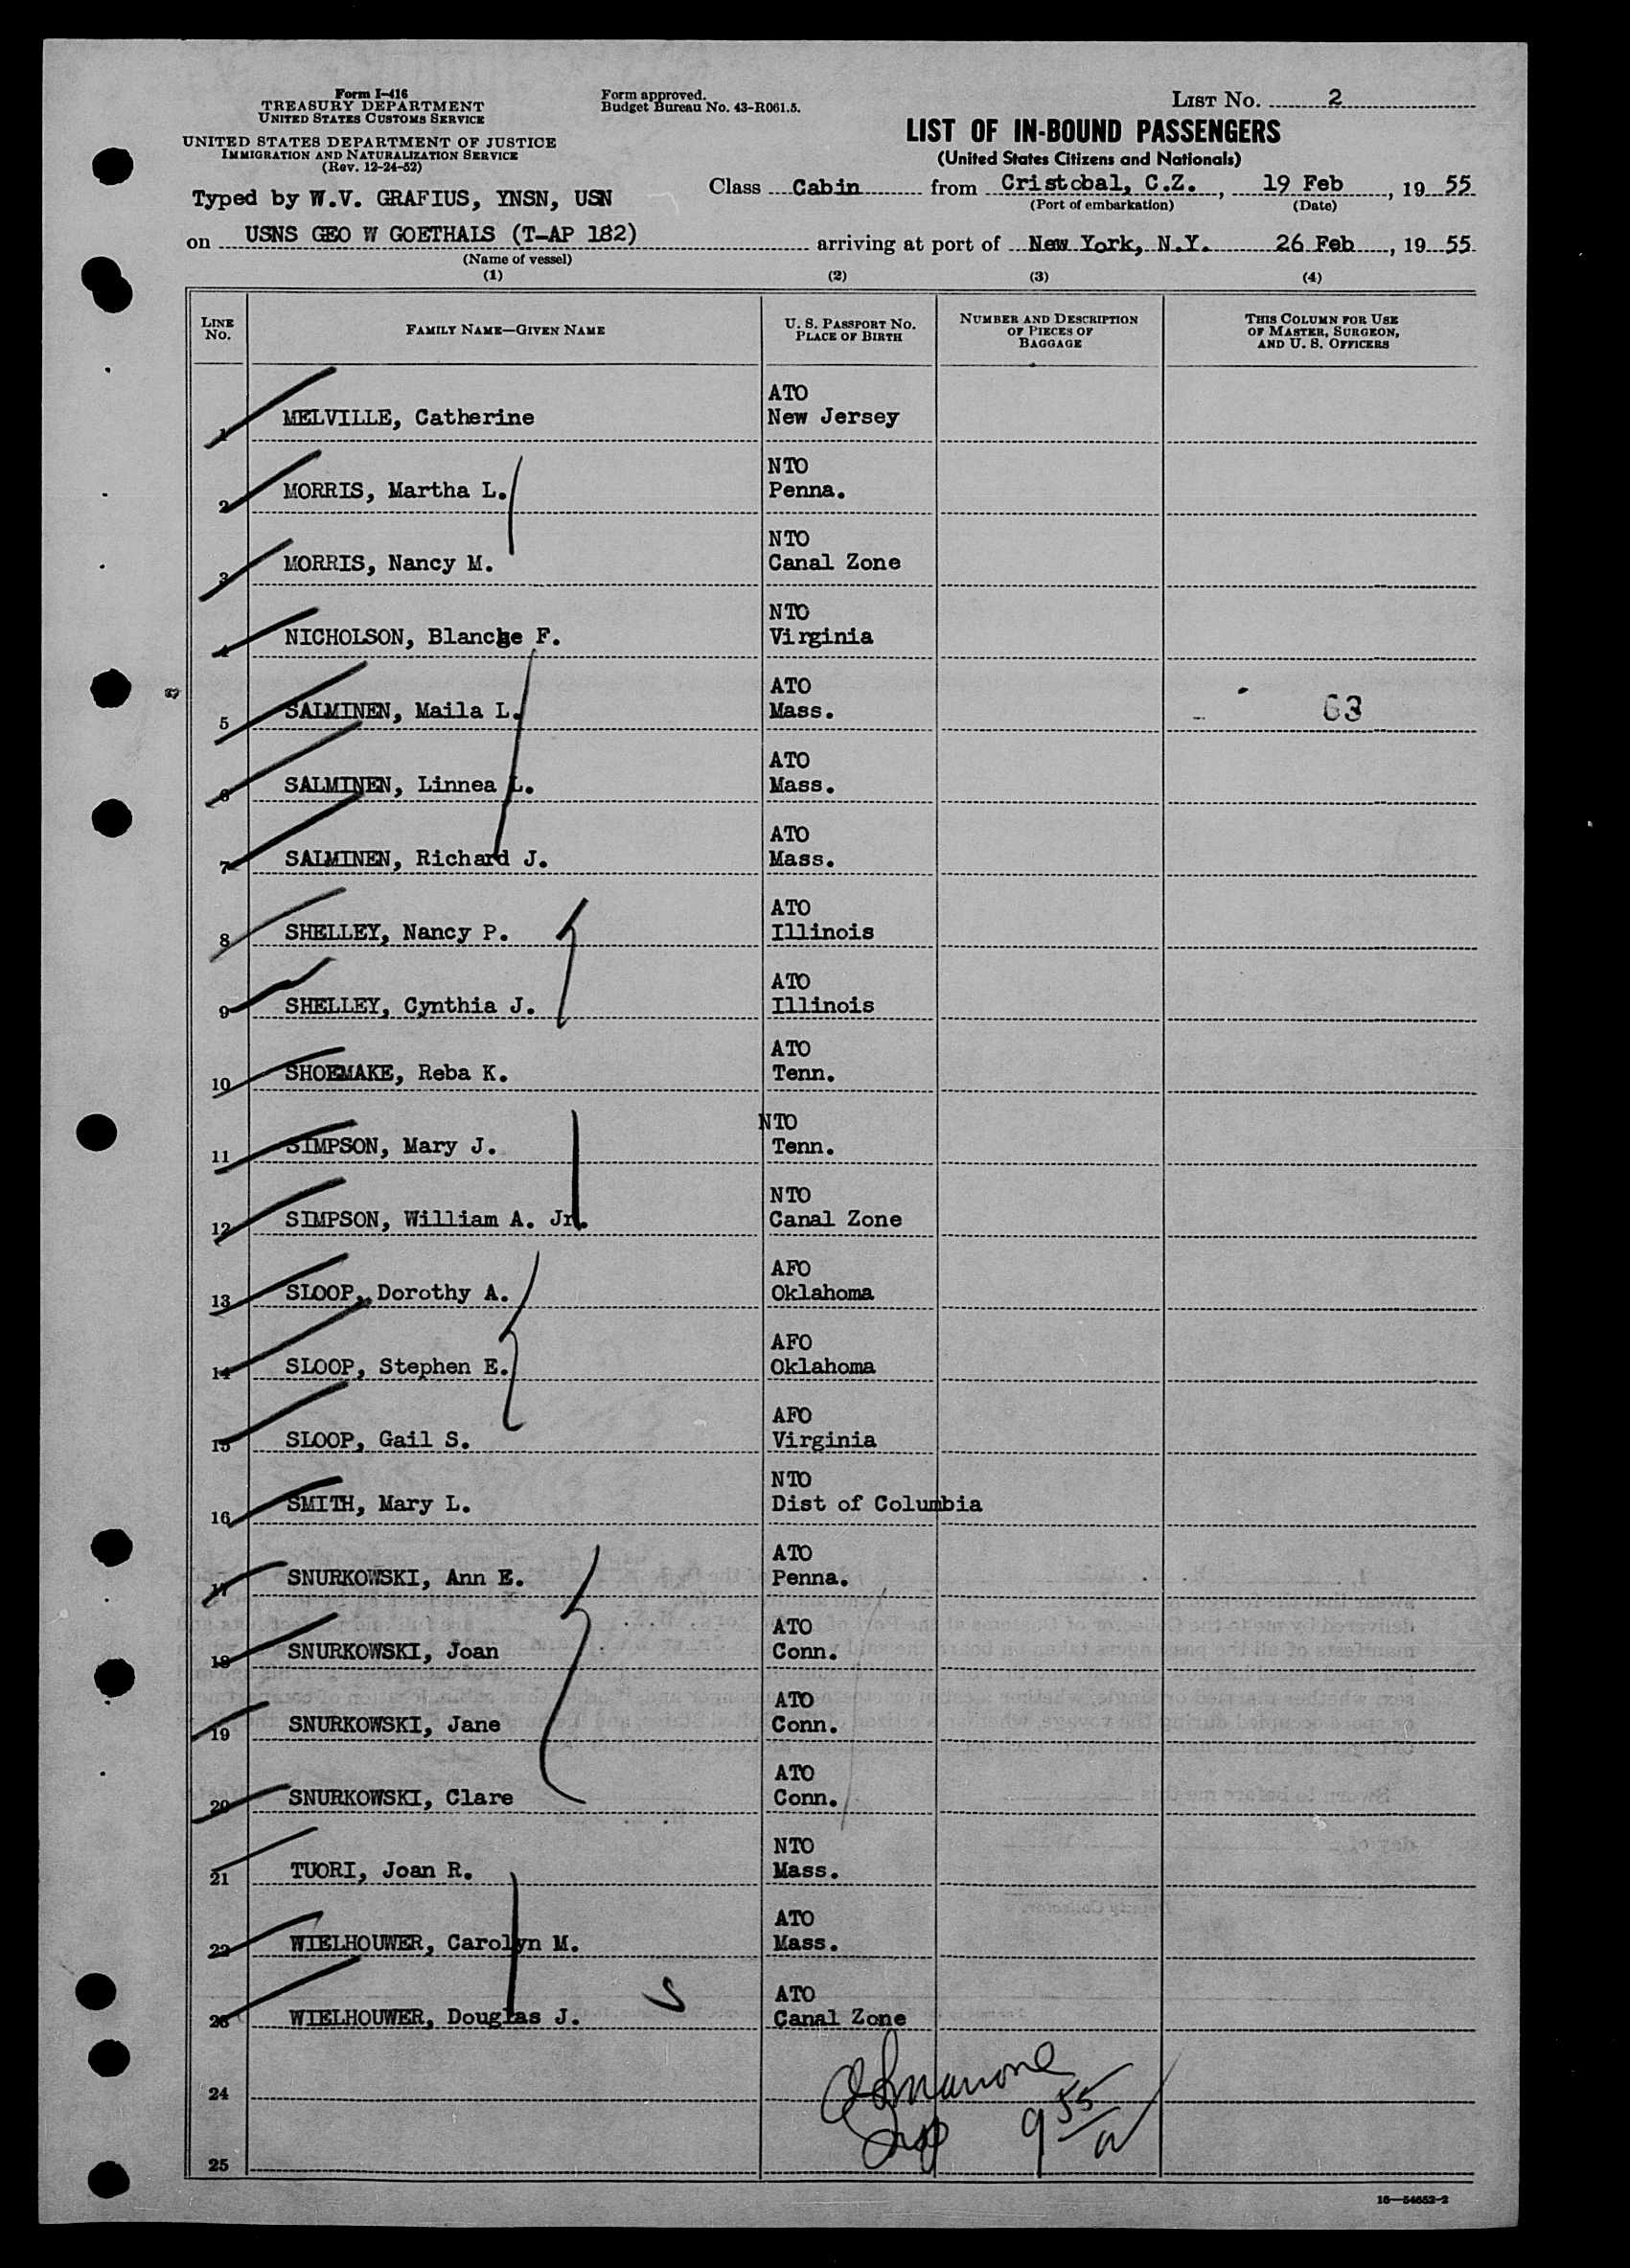 Form I-416
TREASURY DEPARTMENT
UNITED STATES CUSTOMS SERVICE
UNITED STATES DEPARTMENT OF JUSTICE
IMMIGRATION AND NATURALIZATION SERVICE
(Rev. 12-24-52)
Form approved.
Budget Bureau No. 43-R061.5.
LIST No. 2
LIST OF IN-BOUND PASSENGERS
(United States Citizens and Nationals)
Typed by W.V. GRAFIUS, YNSN, USN
Class Cabin from Cristobal, C.Z., 19 Feb, 19 55
(Port of embarkation) (Date)
on USNS GEO W GOETHALS (T-AP 182) arriving at port of New York, N.Y. 26 Feb, 19 55
(Name of vessel)
(1) (2) (3) (4)
LINE NO.
FAMILY NAME—GIVEN NAME
U. S. PASSPORT NO.
PLACE OF BIRTH
NUMBER AND DESCRIPTION
OF PIECES OF
BAGGAGE
THIS COLUMN FOR USE
OF MASTER, SURGEON,
AND U. S. OFFICERS
ATO
1 MELVILLE, Catherine New Jersey
NTO
2 MORRIS, Martha L. Penna.
NTO
3 MORRIS, Nancy M. Canal Zone
NTO
4 NICHOLSON, Blanche F. Virginia
ATO
5 SALMINEN, Maila L. Mass. 63
ATO
6 SALMINEN, Linnea L. Mass.
ATO
7 SALMINEN, Richard J. Mass.
ATO
8 SHELLEY, Nancy P. Illinois
ATO
9 SHELLEY, Cynthia J. Illinois
ATO
10 SHOEMAKE, Reba K. Tenn.
NTO
11 SIMPSON, Mary J. Tenn.
NTO
12 SIMPSON, William A. Jr. Canal Zone
AFO
13 SLOOP, Dorothy A. Oklahoma
AFO
14 SLOOP, Stephen E. Oklahoma
AFO
15 SLOOP, Gail S. Virginia
NTO
16 SMITH, Mary L. Dist of Columbia
ATO
17 SNURKOWSKI, Ann E. Penna.
ATO
18 SNURKOWSKI, Joan Conn.
ATO
19 SNURKOWSKI, Jane Conn.
ATO
20 SNURKOWSKI, Clare Conn.
NTO
21 TUORI, Joan R. Mass.
ATO
22 WIELHOUWER, Carolyn M. Mass.
ATO
23 WIELHOUWER, Douglas J. Canal Zone
24
9 55
25
16—54652-2